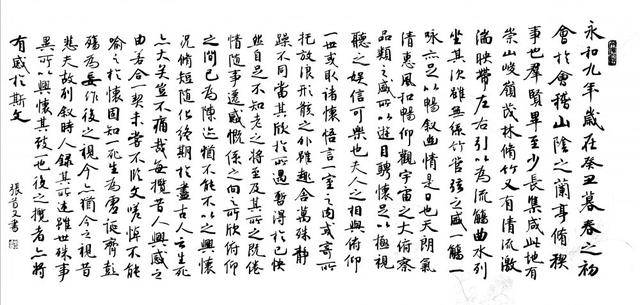 永和九年歲在癸丑暮春之初
會於會稽山陰之蘭亭脩稧
事也羣賢畢至少長集咸此地有
崇山峻嶺茂林脩竹又有清流激
湍映帶左右引以為流觴曲水列
坐其次雖無絲竹管弦之盛一觴一
詠亦足以暢敘幽情是日也天朗氣
清惠風和暢仰觀宇宙之大俯察
品類之盛所以遊目騁懷足以極視
聽之娛信可樂也夫人之相與俯仰
一世或取諸懷悟言一室之內或寄所
托放浪形骸之外雖趣舍萬殊静
躁不同當其欣於所遇暫得於己快
然自足不知老之將至及其所之既倦
情隨事遷感慨係之向之所欣俯仰
之間已為陳迹猶不能不以之興懷
況脩短隨化終期於盡古人云生死
亦大矣豈不痛哉每攬昔人興感之
由若合一契未嘗不臨文嗟悼不能
喻之於懷固知一死生為虛誕齊彭
殤為妄作後之視今亦猶今之視昔
悲夫故列敘時人錄其所述雖世殊事
異所以興懷其致一也後之攬者亦將
有感於斯文
張文書